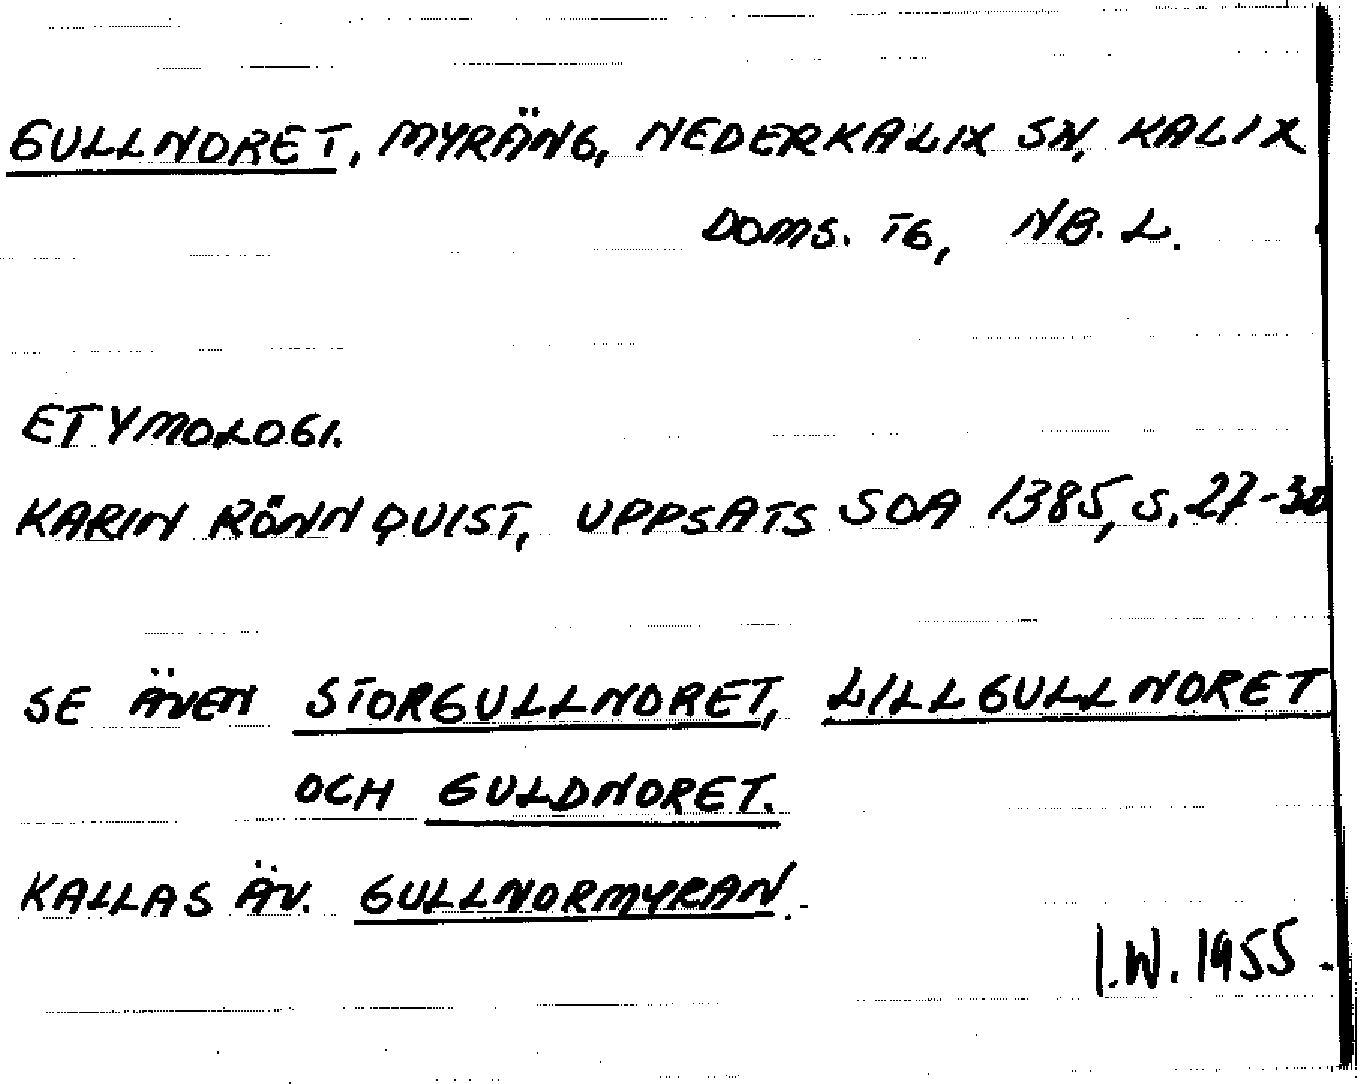 GULLNORET, MYRÄNG, NEDERKALIX SN, KALIX
DOMS. TG, NB. L.
ETYMOLOGI.
KARIN RÖNNQUIST, UPPSATS SOA 1385, S. 27-30
SE ÄVEN STORGULLNORET, LILLGULLNORET
OCH GULDNORET.
KALLAS ÄV. GULLNORMYRAN.-
I.W. 1955.-